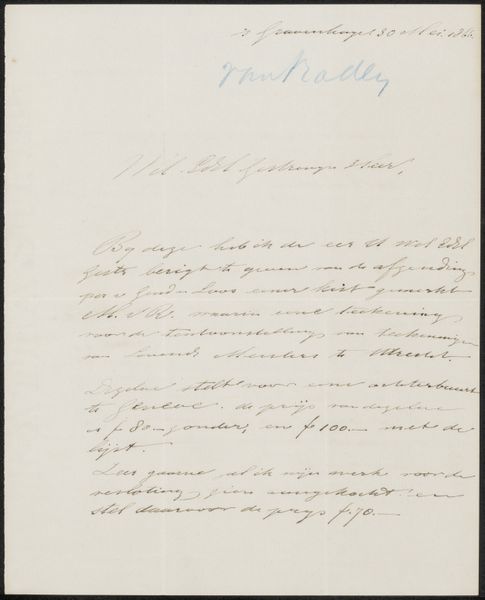 's Gravenhage 30 Mei 186
van Raden
Wel Edel Gestrenge Heer,
Bij deze heb ik de eer U Wel Edel
Gestr berigt te geven van de afzending
per v Gend & Loos eener kist gemerkt
M. v R. waarin eene teekening
voor de tentoonstelling van teekeningen
van levende Meesters te Utrecht.
Dezelve stelt voor eene achterbuurt
te Geneve. de prijs van dezelve
is f 80.- zonder, en f 100.- met de
lijst.
Zeer gaarne zal ik mijn werk voor de
verloting zien aangekocht en
stel daarvoor de prijs f. 70.-